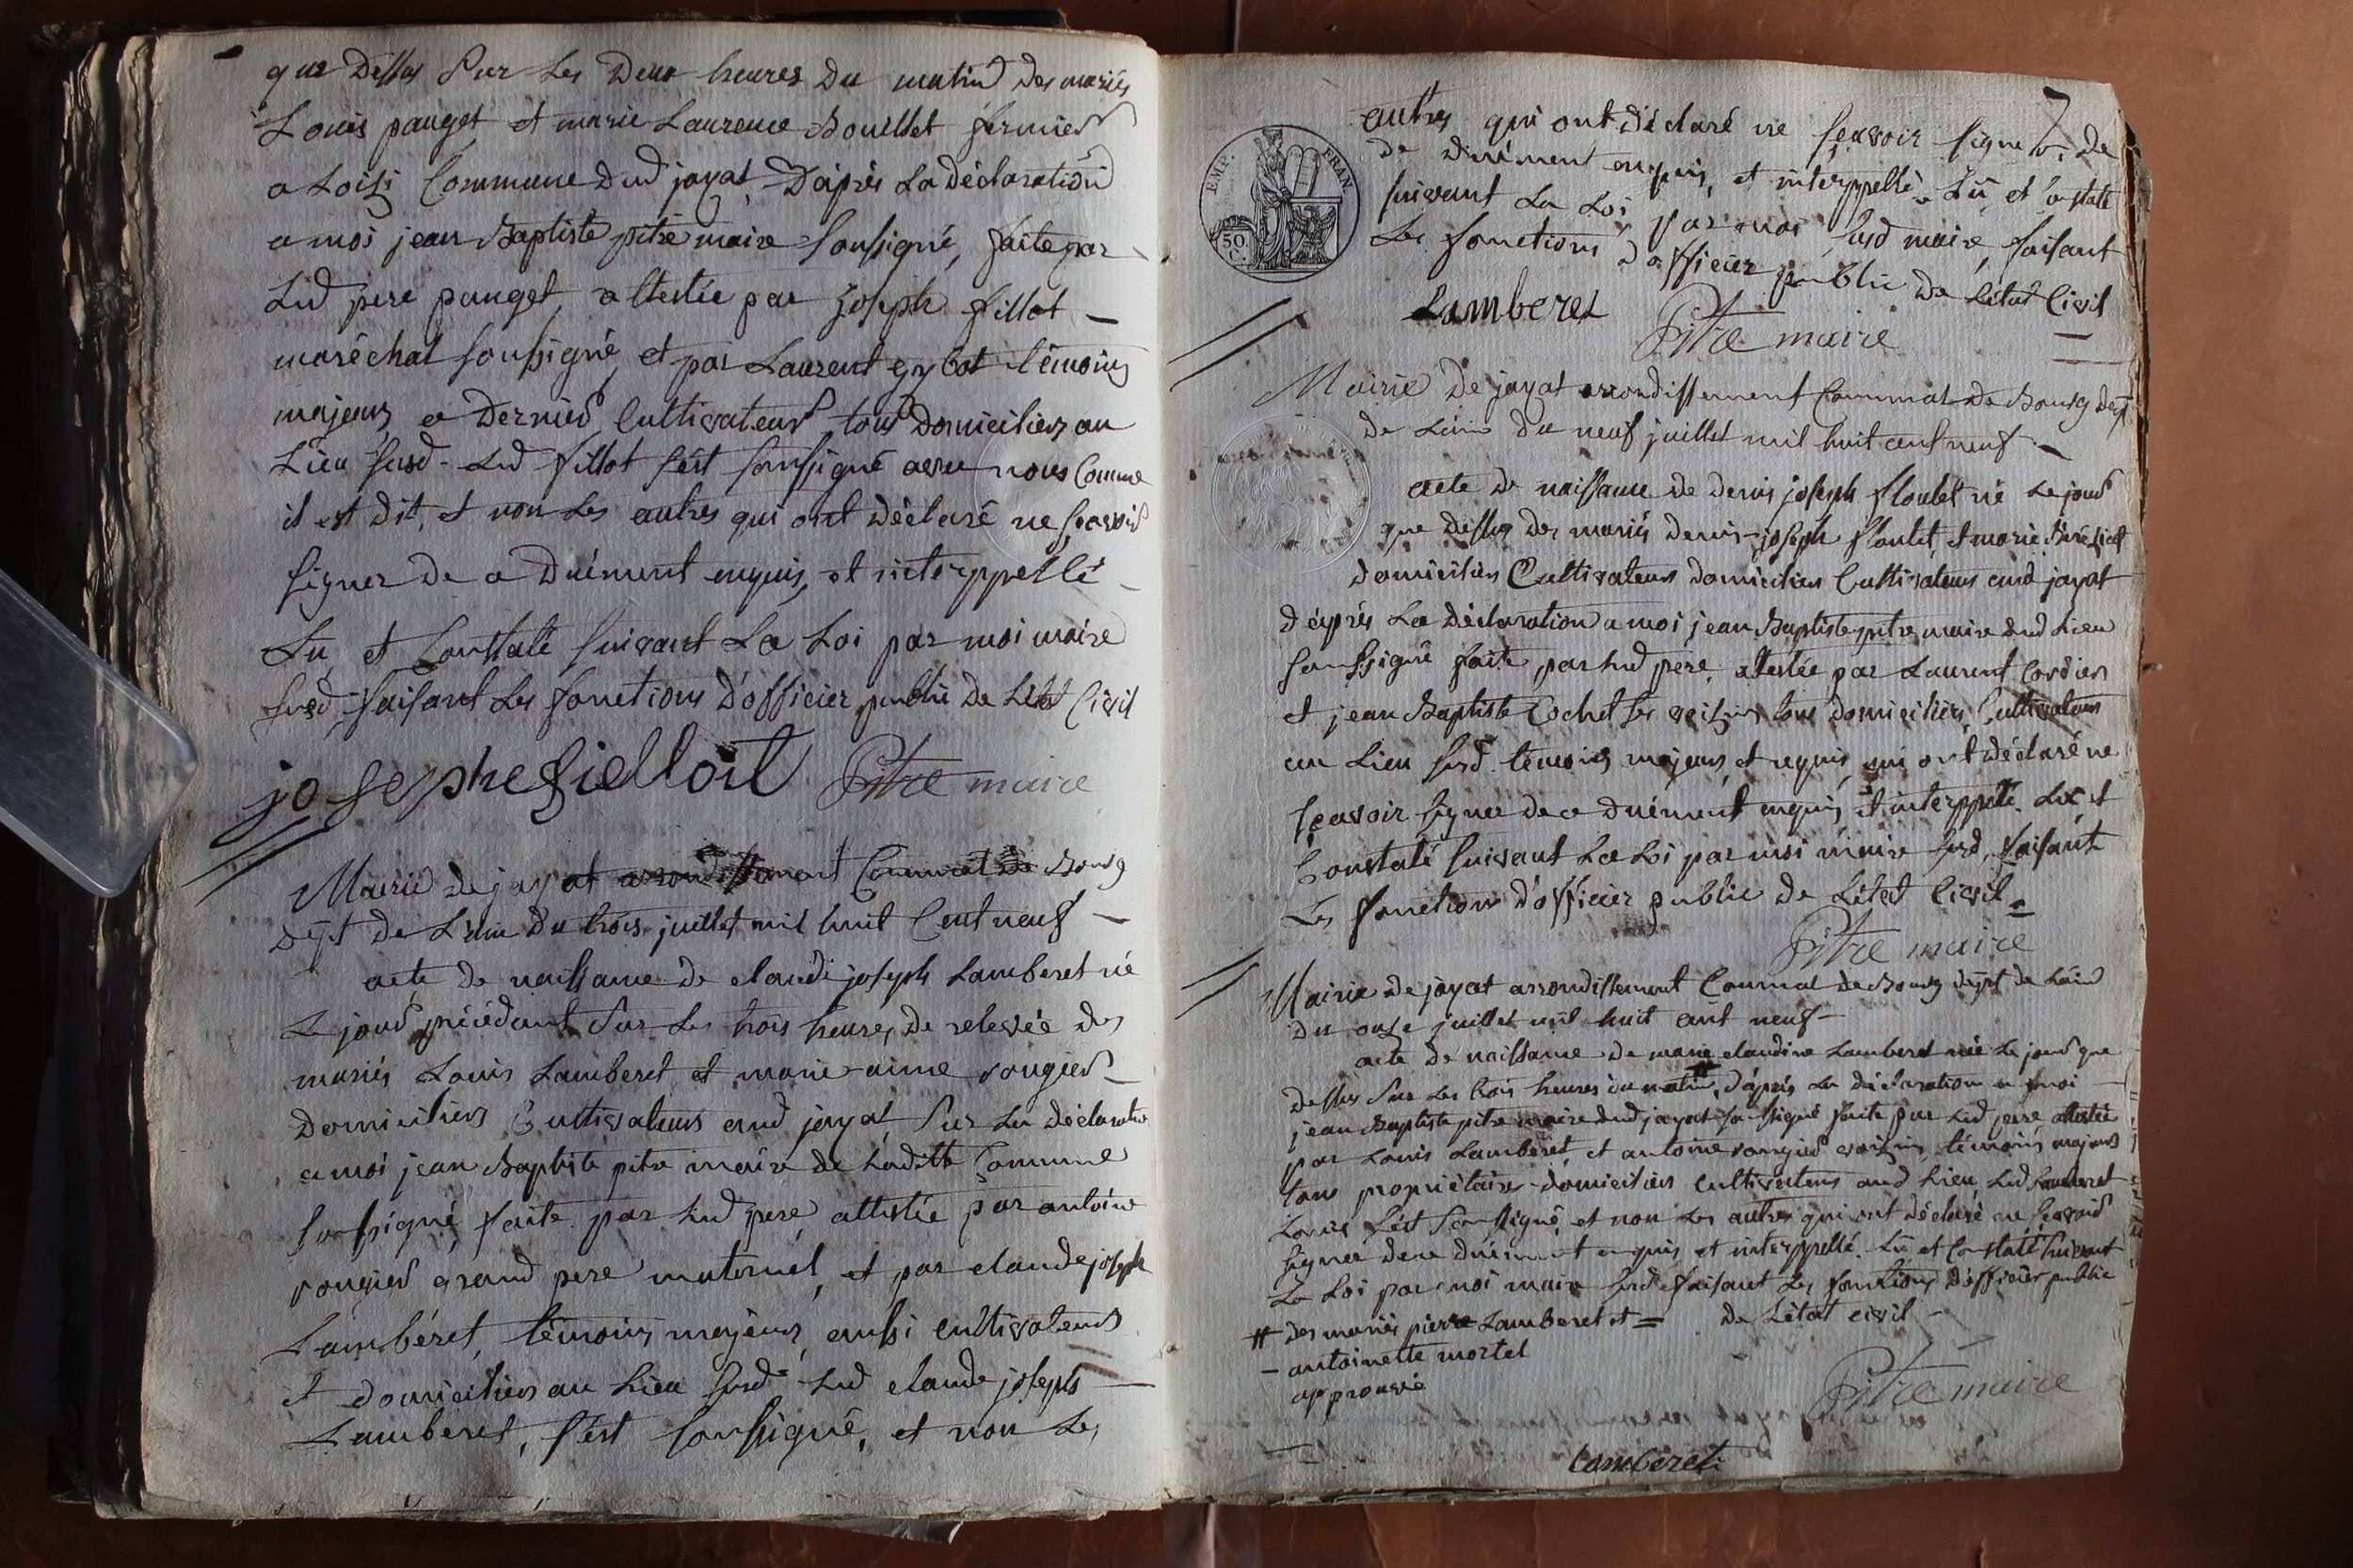 que dessus sur les deux heures du matin des mariés
Louis pauget et marie Laurence Bouillet fermier
a Loisi Commune dud jayat D'après la déclaration
a moi jean Baptiste pitre maire soussigné, faite par
Lud pere pauget, attestée par joseph fillot
maréchal soussigné et par Laurent témoins
majeurs ce dernier cultivateur tous domiciliers au
Lieu susd. Lud fillot s'est soussigné avec nous Comme
il est dit, et non les autres qui ont déclaré ne sçavoir
signer de ce duëment enquis, et interppellé
Lu, et Constaté suivant La Loi par moi maire
susd faisant les fonctions d'officier public de L'état Civil
josephe fielloit Pitre maire
Mairie de jayat arrondissement Communal de Bourg
dépt de L'ain du trois juillet mil huit Cent neuf
acte de naissance de claude joseph Lamberet né
Le jour précédant sur les trois heures de relevée des
mariés Louis Lamberet et marie aime rougier
domiciliers Cultivateurs aud jayat sur La déclaration
a moi jean Baptiste pitre maire de Laditte Commune
soussigné, faite par Lud pere attestée par antoine
rougier grand pere maternel, et par claude joseph
Lambéret, témoins majeurs, aussi cultivateurs
et domiciliers au Lieu susd Lud claude joseph
Lamberet, s'est soussigné, et non les
7
autres qui ont déclaré ne sçavoir signer, de
ce duëment enquis, et interppellé. Lu, et Constaté
suivant La Loi par moi susd maire, faisant
Les fonctions d'officier public de L'état Civil
EMP. FRAN.
50.
C.
Lamberet Pitre maire
Mairie de jayat arrondissement Communal de Bourg dépt
de L'ain du neuf juillet mil huit cent neuf
acte de naissance de denis joseph floulet né Le jour
que dessus des mariés denis-joseph floulet, et marie
domiciliers Cultivateurs domiciliers Cultivateurs aud jayat
d'après La déclaration a moi jean Baptiste pitre maire dud Lieu
soussigné faite par Lud pere, attestée par Laurent Cordier
et jean Baptiste Cochet les voisins tous domiciliers, Cultivateurs
au Lieu susd. témoins majeurs, et requis, qui ont déclaré ne
sçavoir signer de ce duëment enquis, et interppellé. Lu et
Constaté suivant La Loi par moi maire susd, faisant
Les fonctions d'officier public de L'état Civil
Pitre maire
Mairie de jayat arrondissement Communal de Bourg dépt de L'ain
du onze juillet mil huit cent neuf
acte de naissance de marie claudine Lamberet née Le jour que
dessus sur Les trois heures du matin, # d'après La déclaration a moi
jean Baptiste pitre maire dud jayat soussigné faite par Lud pere attestée
par Louis Lamberet, et antoine rougier voisins, témoins majeurs
tous propriétaires domiciliers cultivateurs aud Lieu, Lud Lamberet
Louis s'est soussigné, et non Les autres qui ont déclaré ne sçavoir
signer de ce duëment enquis et interppellé. Lu et Constaté suivant
La Loi par moi maire susd faisant Les fonctions d'officier public
de L'état civil
# des mariés pierre Lamberet et
antoinette mortel
approuvé
Pitre maire
Lamberet